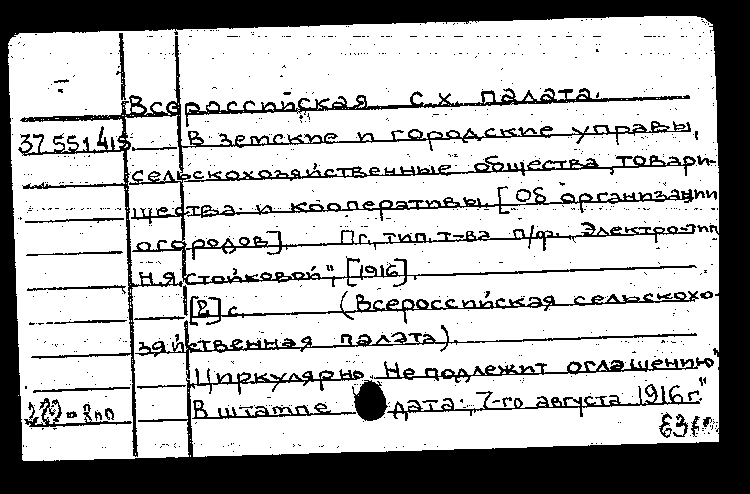 Всероссийская с.х. палата.
37.551.415 В земские и городские управы,
сельскохозяйственные общества, товари-
щества и кооперативы. [Об организации
огородов]. Пг., тип. т-ва п/ф. „Электро-тип.
Н.Я.Стойковой", [1916].
[2] с. (Всероссийская сельскохо-
зяйственная палата).
„Циркулярно. Не подлежит оглашению"
В штампе дата: „7-го августа 1916 г."